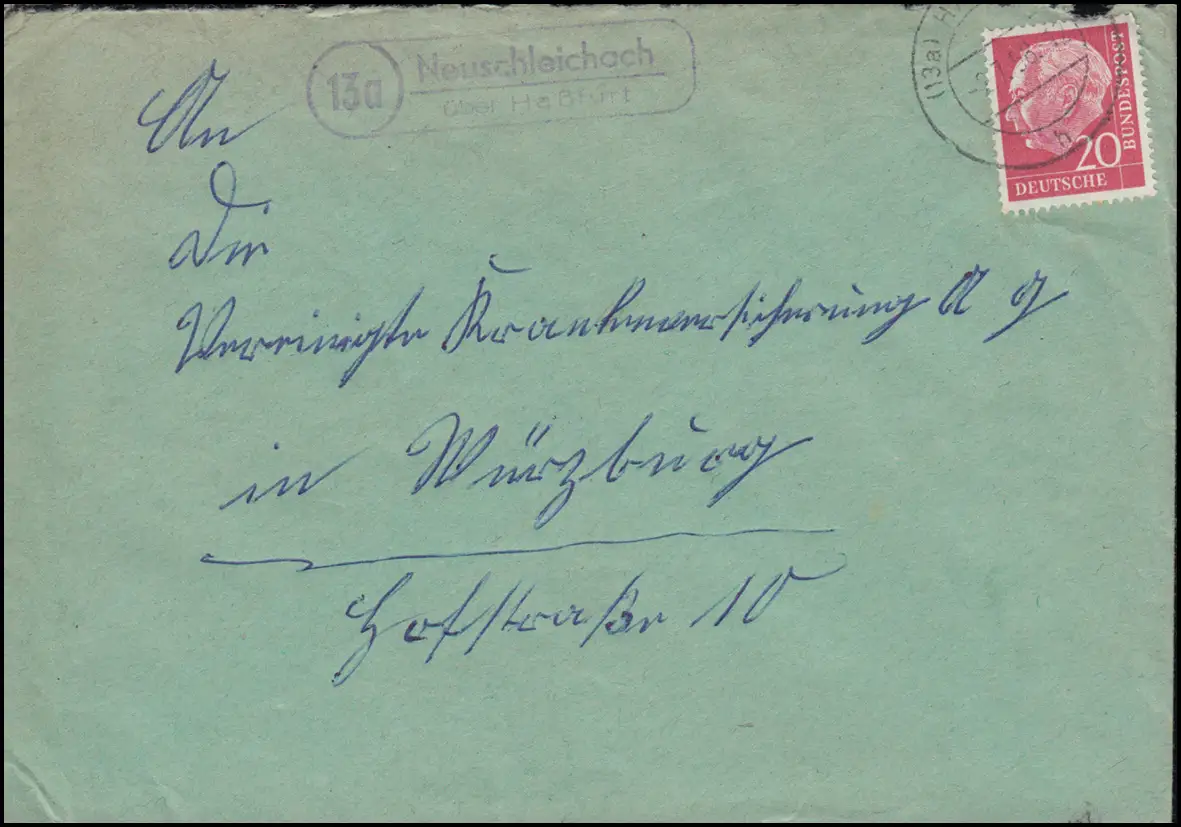 13a
Neuschleichach
über Haßfurt
(13a) H
20
DEUTSCHE
BUNDESPOST
An
Die
Vereinigte Krankenversicherung A G
in Würzburg
Hofstraße 10